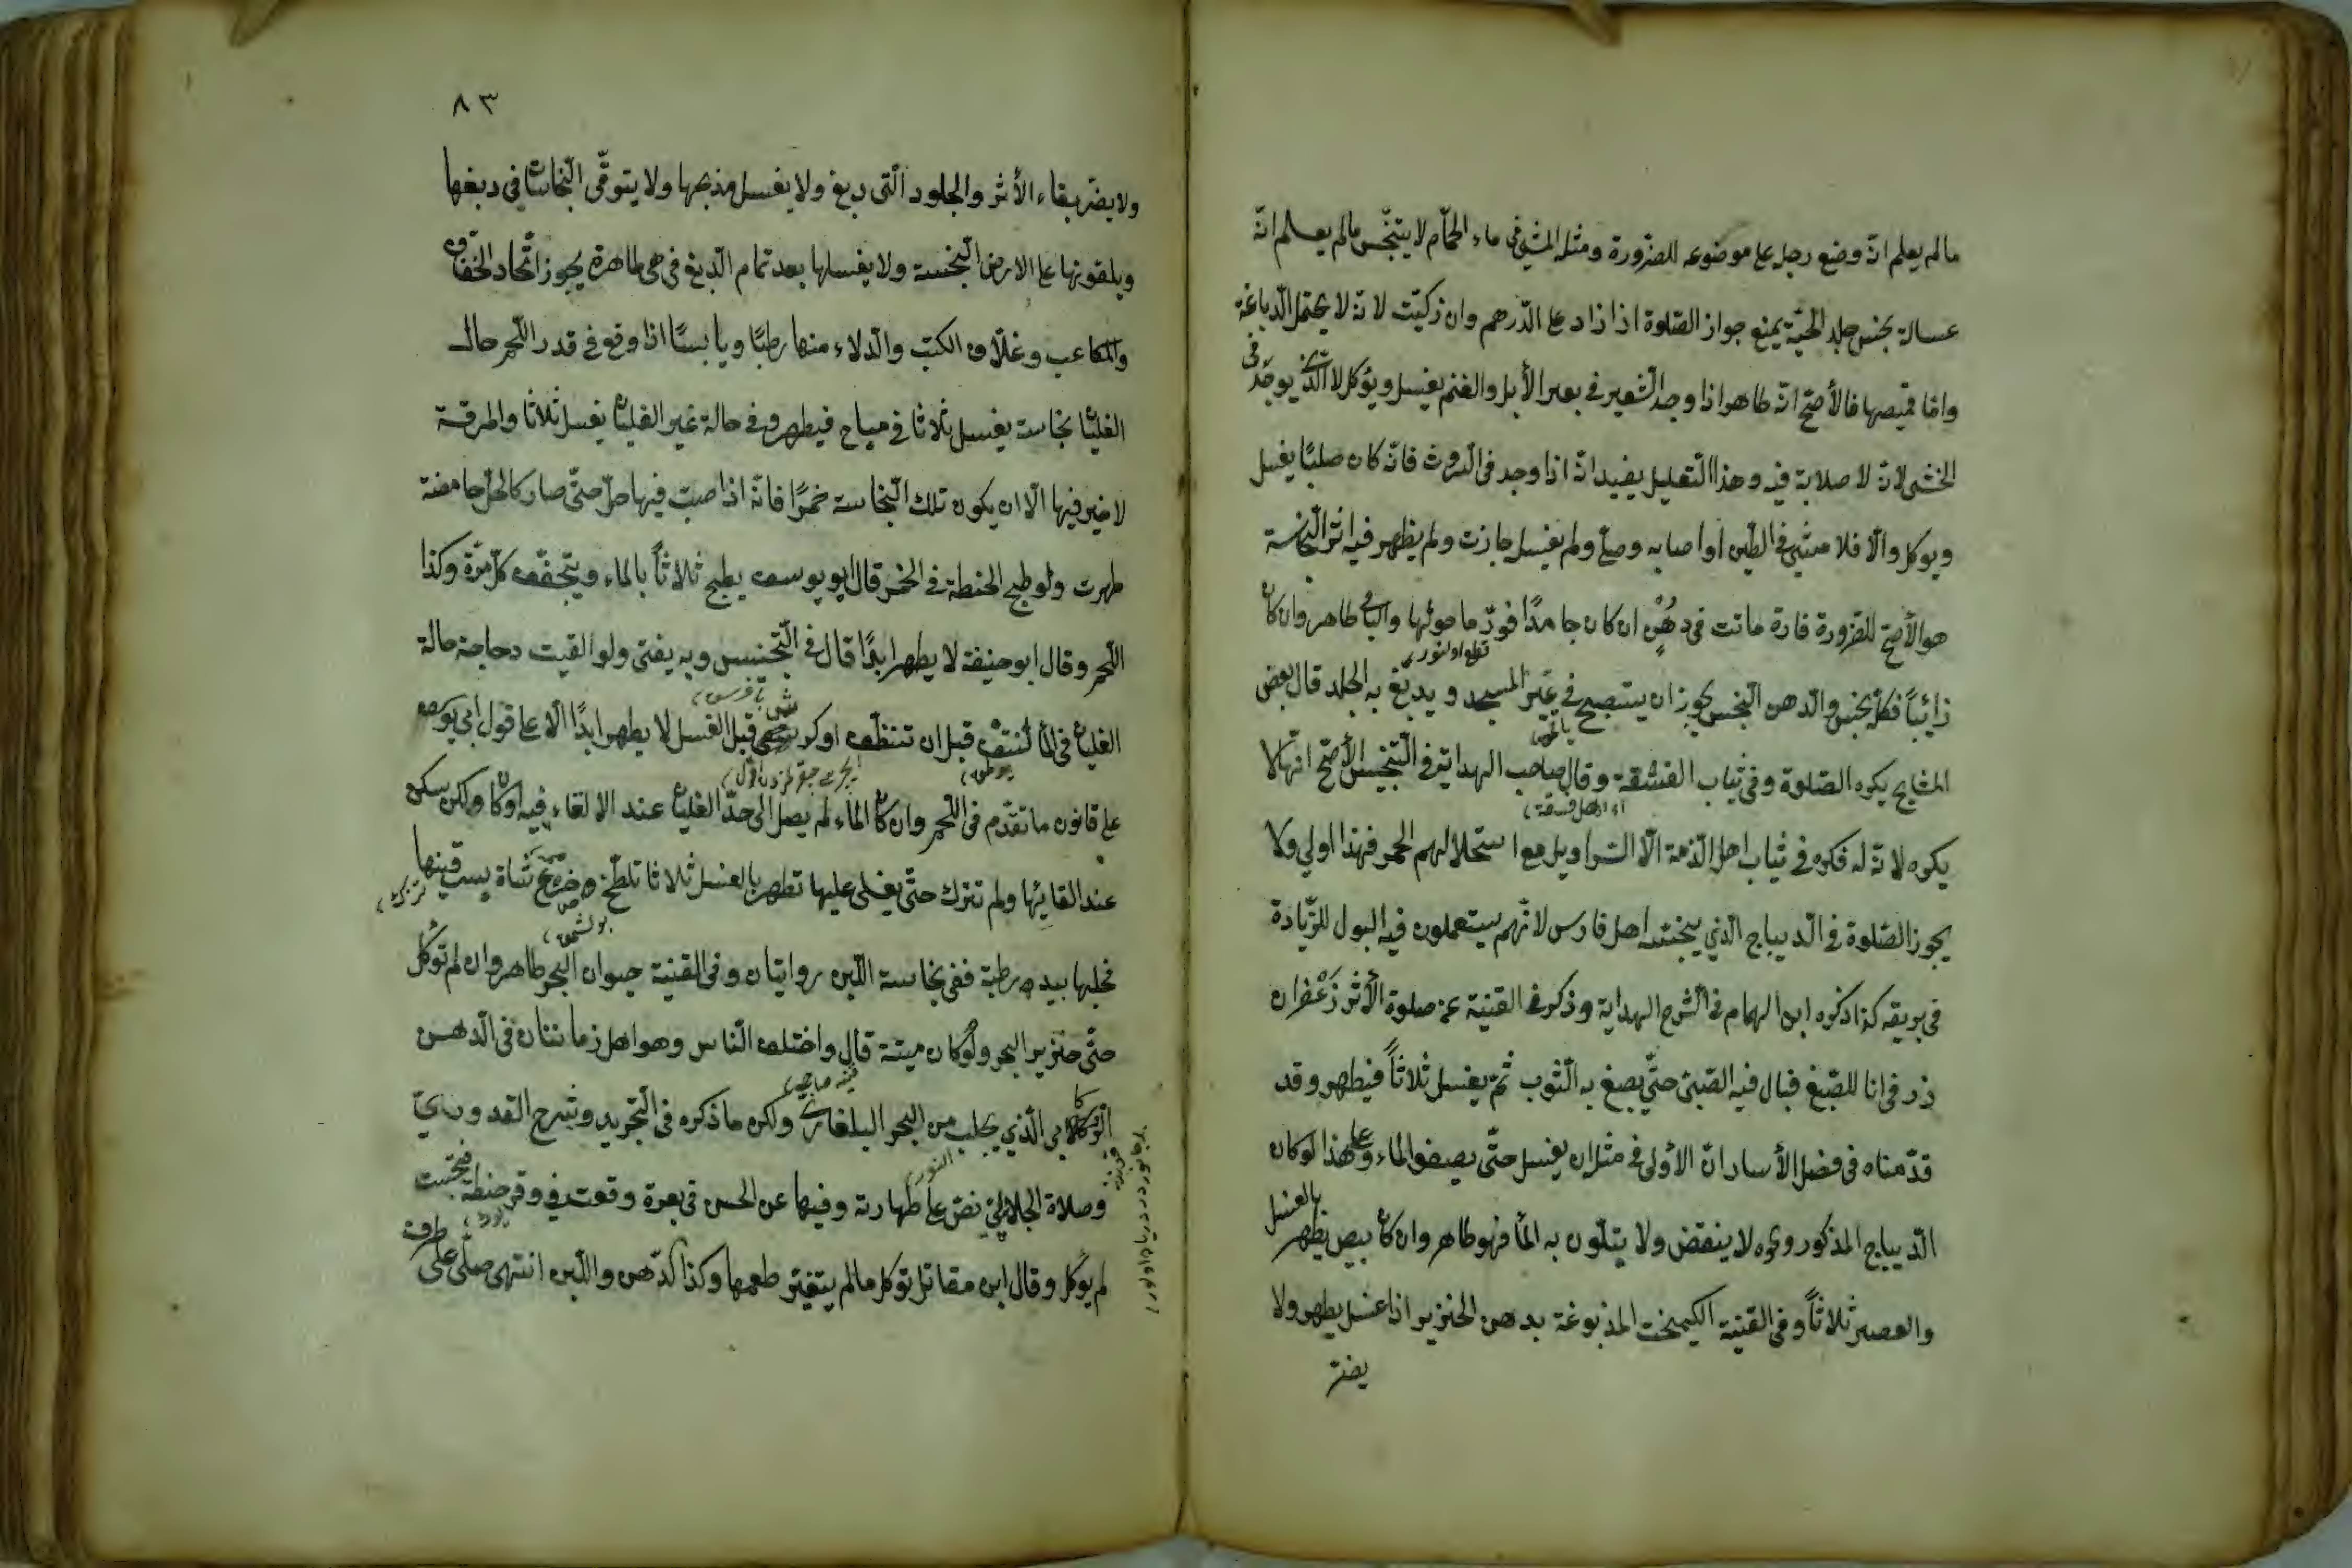 مالم يعلم انّه وضع رجله على موضوعه للضّرورة ومثله المشي في ماء الحمّام لا يتنجّس مالم يعلم انّه
غسالة نجس جلد الحيّة يمنع جواز الصّلوة اذا زاد على الدّرهم وان زكيّت لانّه لا يحتمل الدّباغة
وامّا قميصها فالأصحّ انّه طاهر اذا وجد الشّعير في بعر الأبل والغنم يغسل ويؤكل لا الّذي يوجد في
الخثى لانّه لا صلابة فيه وهذا التّعليل يفيد انّه اذا وجد في الرّوث فانّه كان صلبًا يغسل
ويوكل والّا فلا مشى في الطّين او اصابه وصلّى ولم يغسل جازت ولم يظهر فيه اثر النّجاسة
هو الأصحّ للضّرورة فارة ماتت في دهن ان كان جامدًا قوّر ما حولها والباقي طاهر وان كان
ذائبًا فكلّه نجس والدّهن النّجس يجوز ان يستصبح في غير المسجد ويدبغ به الجلد قال بعض
المشايخ يكره الصّلوة في ثياب الفسقة وقال صاحب الهداية في التّجنيس الأصحّ انّها لا
يكره لانّه لم يكره في ثياب اهل الذّمة الّا السّراويل مع استحلالهم الخمر فهذا اولى ولا
يجوز الصّلوة في الدّيباج الّذي ينجسه اهل فارس لانّهم يستعملون فيه البول للزّيادة
في بريقه كذا ذكره ابن الهمام في الشّرح الهداية وذكر في القنية عن صلوة الأثر زعفران
ذر في انا للصّبغ فبال فيه الصّبيّ حتّى يصبغ به الثّوب ثمّ يغسل ثلاثاً فيطهر وقد
قدّمناه في فصل الأسار انّ الأولى في مثله ان يغسل حتّى يصفو الماء وعلى هذا لو كان
الدّيباج المذكور ونحوه لا ينقض ولا يتلّون به الماء فهو طاهر وان كان بيض يطهر بالغسل
والعصير ثلاثاً وفي القنية الكيمخت المدبوغة بدهن الخنزير اذا غسل يطهر ولا
يضرّ
٨٣
ولا يضرّ بقاء الأثر والجلود الّتى دبغ ولا يغسل مذبحها ولا يتوقّى النّجاسات في دبغها
ويلقونها على الارض النّجسة ولا يغسلها بعد تمام الدّبغ في هي طاهرة يجوز اتّخاذ الخفاف
والمكاعب وغلاف الكتب والدّلاء منها رطبًا ويابسًا اذا وقع في قدر اللّحم حال
الغليان نجاسة يغسل ثلاثا في مياه فيطهر وفي حالة غير الغليان يغسل ثلاثا والمرقة
لا خير فيها الّا ان يكون تلك النّجاسة خمرًا فانّه اذا صبّ فيها خلّ حتّى صار كالخلّ حامضة
طهرت ولو طبخ الحنطة في الخمر قال ابو يوسف يطبخ ثلاثاً بالماء ويتجفّف كلّ مرّة وكذا
اللّحم وقال ابو حنيفة لا يطهر ابدًا قال في التّجنيس وبه يفتى ولو القيت دجاجة حالة
الغليان في الماء لتنتف قبل ان تنتظّف او كرش قبل الغسل لا يطهر ابدًا الّا على قول ابي يوسف
على قانون ما تقدّم في اللّحم وان كان الماء لم يصل الى حدّ الغليان عند الالقاء فيه او كان ولكن سكن
عند القائها ولم تترك حتّى يغلى عليها تطهر بالغسل ثلاثا تلطّخ ضرع شاة بسرقينها
فحلبها بيده رطبة ففي نجاسة اللّبن روايتان وفي القنية حيوان البحر طاهر وان لم تؤكل
حتّى خنزير البحر ولو كان ميتة قال واختلف النّاس وهو اهل زماننا في الدّهن
الّذي يجلب من البحر البلغاري ولكن ما ذكره في التّجريد وشرح القدوري
وصلاة الجلابي نصّ على طهارته وفيها عن الحسن في بعرة وقعت في وقر حنطة
لم يؤكل وقال ابن مقاتل تؤكل مالم يتغيّر طعمها وكذا الدّهن واللّبن انتهى صلّى على طرف